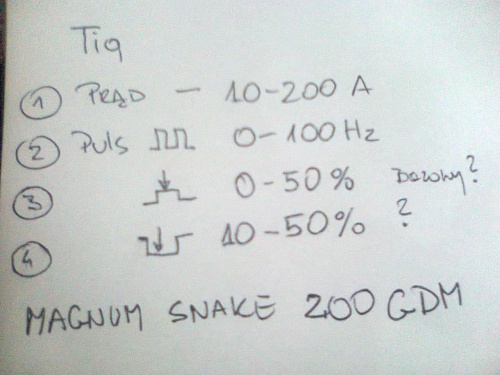 Tig
1 PRĄD - 10-200 A
2 Puls 0-100 Hz
3 0-50% Bazowy?
4 10-50% ?
MAGNUM SNAKE 200 GDM